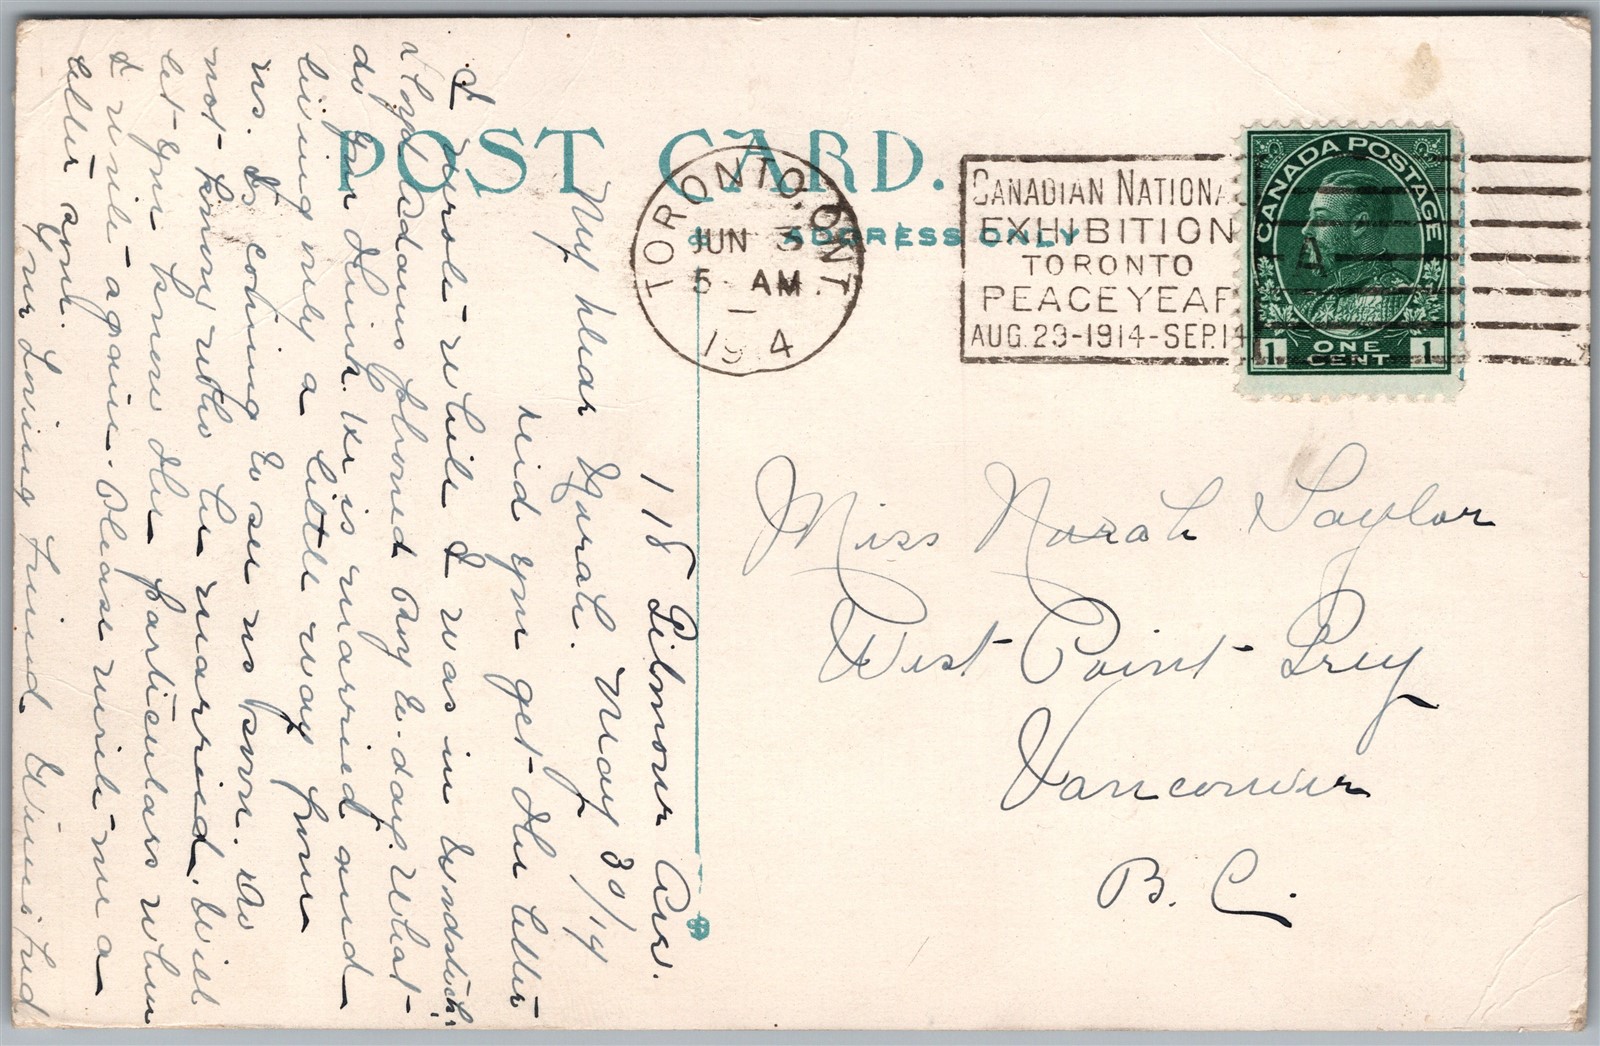 POST CARD.
ADDRESS ONLY
TORONTO, ONT
JUN 3
5 AM
1914
CANADIAN NATIONA
EXHIBITION
TORONTO
PEACE YEAR
AUG. 29-1914-SEP. 14
CANADA POSTAGE
1 ONE CENT 1
Miss Norah Saylor
West Point Grey
Vancouver
B. C.
118 Gilmour Ave.
My Dear Norah. May 30/14
Did you get the letter
I wrote while I was in
Lloyd Adams phoned Roy to-day. What
do you think. He is married and
living only a little way from
us. Is coming to see us soon. Do
not know who he married. Will
let you know the particulars when
I write again. Please write me a
letter soon.
Your Loving Friend. Winifred